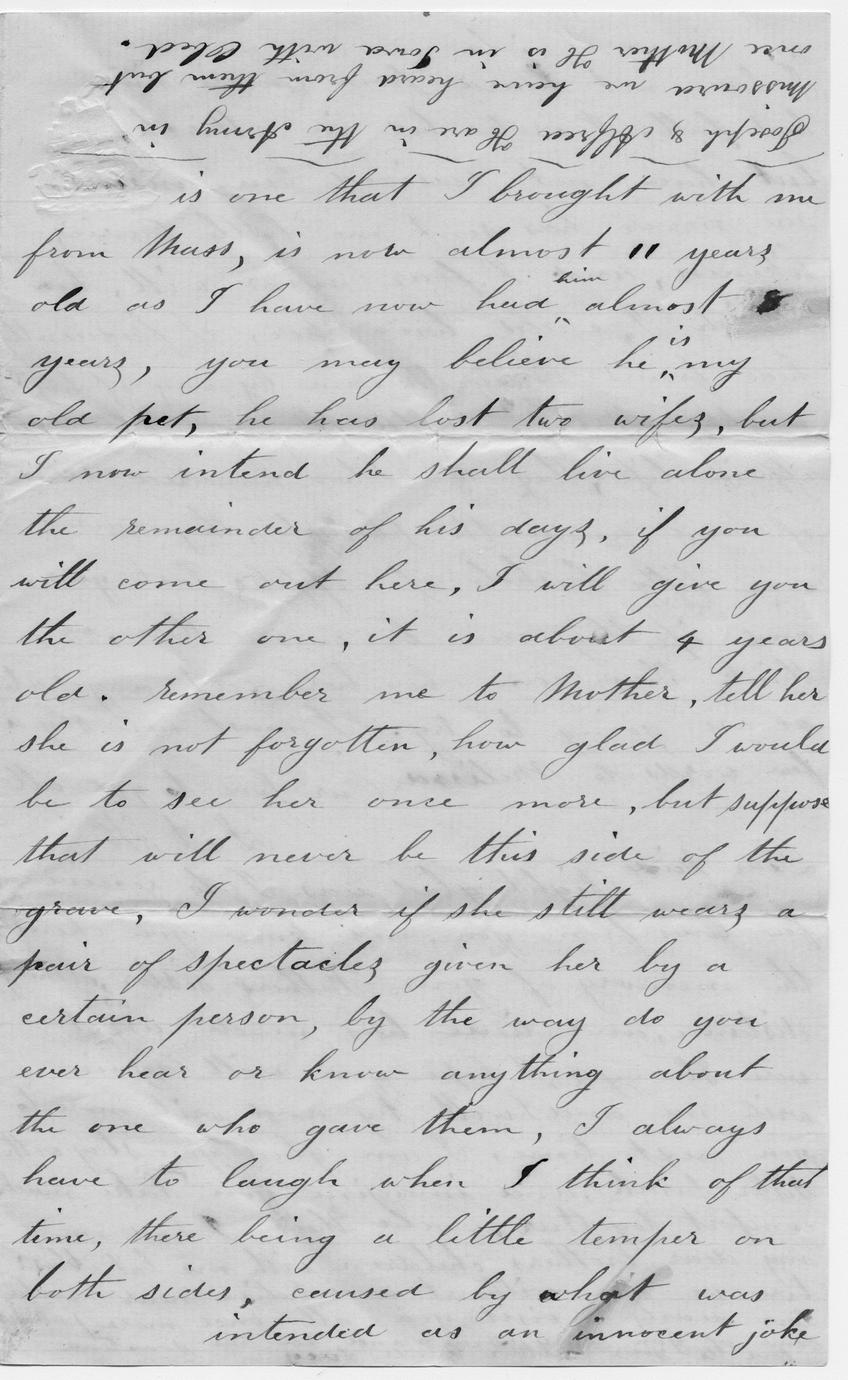 Joseph & Alfred H are in the Army in
Missouri we have heard from them but
once Mother H is in Iowa with Obed.
is one that I brought with me
from Mass, is now almost 11 years
old as I have now had him almost 8
years, you may believe he is my
old pet, he has lost two wifes, but
I now intend he shall live alone
the remainder of his days, if you
will come out here, I will give you
the other one, it is about 4 years
old. remember me to Mother, tell her
she is not forgotten, how glad I would
be to see her once more, but suppose
that will never be this side of the
grave, I wonder if she still wears a
pair of spectacles given her by a
certain person, by the way do you
ever hear or know anything about
the one who gave them, I always
have to laugh when I think of that
time, there being a little temper on
both sides, caused by what was
intended as an innocent joke